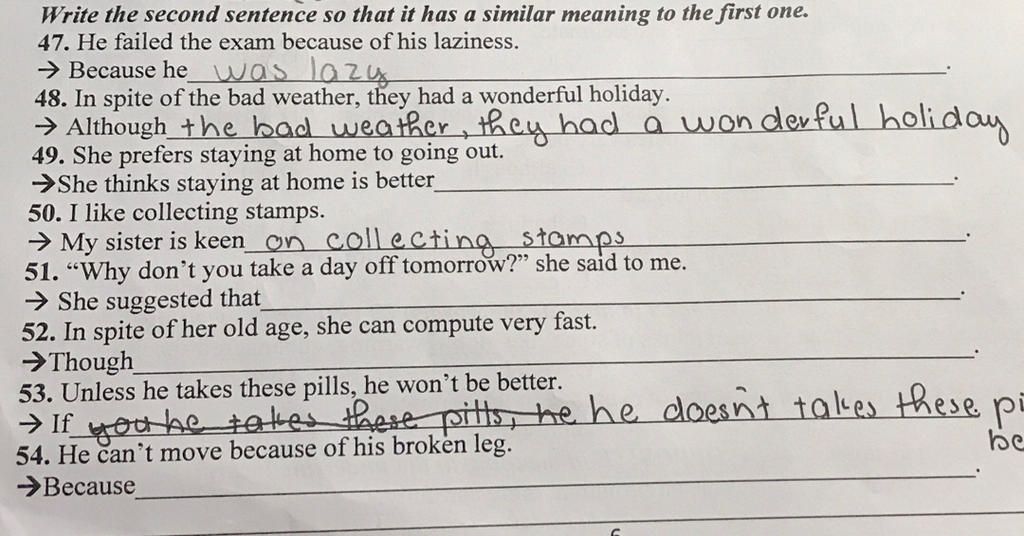 Write the second sentence so that it has a similar meaning to the first one.
47. He failed the exam because of his laziness.
→ Because he was lazy.
48. In spite of the bad weather, they had a wonderful holiday.
→ Although the bad weather, they had a wonderful holiday
49. She prefers staying at home to going out.
→She thinks staying at home is better.
50. I like collecting stamps.
→ My sister is keen on collecting stamps.
51. “Why don’t you take a day off tomorrow?” she said to me.
→ She suggested that.
52. In spite of her old age, she can compute very fast.
→Though.
53. Unless he takes these pills, he won’t be better.
→ If you he takes these pills, he he doesn't takes these pi
be
54. He can’t move because of his broken leg.
→Because.